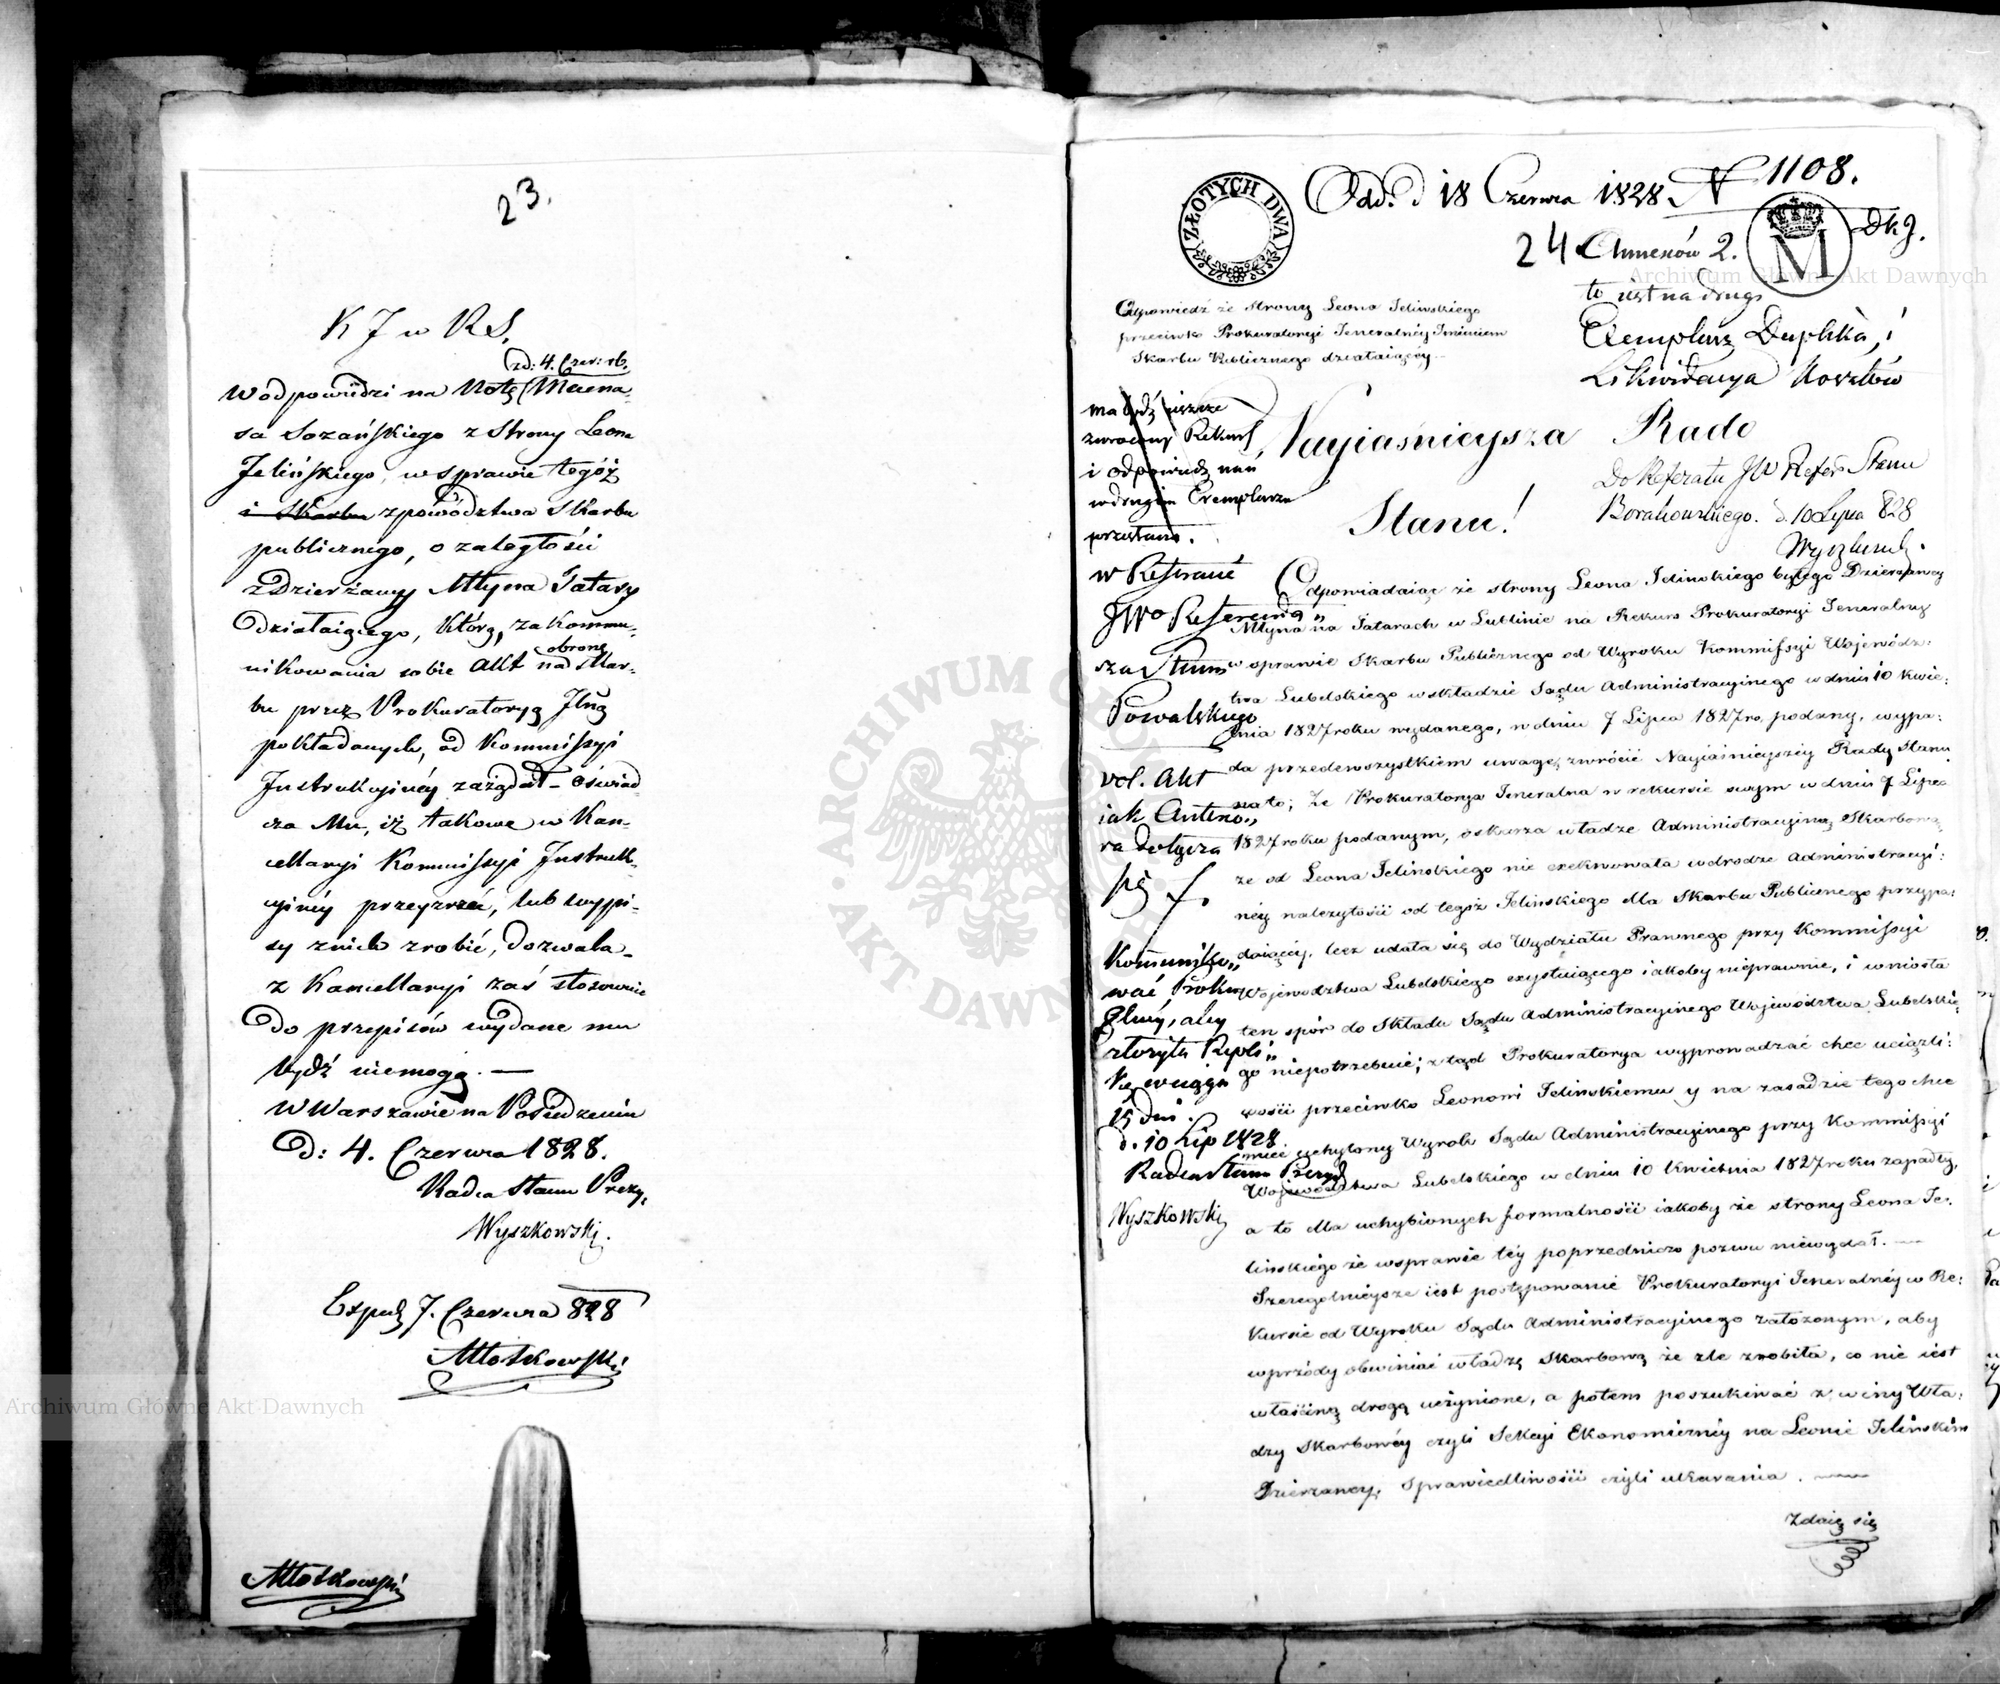 23.
K J w R S.
W odpowiedzi na Notę (zd: 4. Czer: rb. Mecena-
sa Sozańskiego z strony Leona
Jelińskiego, w sprawie tegóż
i Skarbu z powództwa Skarbu
publicznego, o zaległości
z Dzierżawy Młyna Tatary
działaiącego, którą, zakommu-
nikowania sobie Akt obronę nad Skar-
bu przez Prokuratoryą Jlną
pokładanych, od Kommissyi
Instrukcyinéy zażądał - oświad
cza Mu, iż takowe w Kan-
cellaryi Kommissyi Instruk-
cyinéy przeyrzéć, lub wypi-
sy z nich zrobić, dozwala -
z Kancellaryi zaś stosownie
do przepisów wydane mu
bydź niemogą. —
W Warszawie na Posiedzeniu
d: 4. Czerwca 1828.
Radca Stanu Prezy.
Wyszkowski.
Exped. 7. Czerwca 828
Młoskowski
Młoskowski
Odd. d 18 Czerwca 1828. N 1108.
ZŁOTYCH DWA
DKJ.
24 Annexów 2.
M
to iest na drugi
Exemplarz Duplika, i
Likwidacya Kosztów
Odpowiedź że strony Leona Jelinskiego
przeciwko Prokuratoryi Jeneralnéy Imieniem
Skarbu Publicznego działaiącéy.
ma bydź ieszcze
zwrócony Rekurs
i odpowiedz nań
w drugim Exemplarzu
przesłane.
Nayiaśnieysza Rado
Stanu!
Do Referatu JW Refer. Stanu
d. 10 Lipca 828
w Referacie
JWo Referenda„
rza Stanu
Kowalskiego
vol. Akt
iak Antero„
ra dotycza
się
Kommuniko„
wać Proku
Jlnéy, aby
złożyła Repli„
kę w ciągu
15 dni.
d. 10 Lip 1828
Radca Stanu Prezyd
Wyszkowski
Odpowiadaiąc że strony Leona Jelinskiego byłego Dzierżawcy
Młyna na Tatarach w Lublinie na Rekurs Prokuratoryi Jeneralnéy
w sprawie Skarbu Publicznego od Wyroku Kommissyi Wojewódz:
twa Lubelskiego w składzie Sądu Administracyinego w dniu 10 Kwie:
tnia 1827 roku wydanego, w dniu 7 Lipca 1827 ro, podany, wypa:
da przedewszystkiem uwagę zwrócić Nayiaśnieyszéy Rady Stanu
na to; że Prokuratorya Jeneralna w rekursie swym w dniu 7 Lipca
1827 roku podanym, oskarża władze Administracyiną Skarbową,
ze od Leona Jelinskiego nie exekwowała w drodze Administracyi:
néy należytości od tegoż Jelinskiego dla Skarbu Publicznego przypa:
daiącéy, lecz udała się do Wydziału Prawnego przy Kommissyi
Wojewodztwa Lubelskiego exystuiącego iakoby nieprawnie, i wniosła
ten spór do Składu Sądu Administracyinego Województwa Lubelskie:
go niepotrzebnie; z tąd Prokuratorya wyprowadzać chce uciążli:
wości przeciwko Leonowi Jelinskiemu y na zasadzie tego chce
mieć uchylony Wyrok Sądu Administracyinego przy Kommissyi
Województwa Lubelskiego w dniu 10 Kwietnia 1827 roku zapadły,
a to dla uchybionych formalności iakoby że strony Leona Je:
linskiego że w sprawie téy poprzedniczo pozwu niewydał. —
Szczegolnieysze iest postępowanie Prokuratoryi Jeneralnéy w Re:
kursie od Wyroku Sądu Administracyinego założonym, aby
wprzódy obwiniać władzę Skarbową że zle zrobiła, co nie iest
właściwą drogą uczynione, a potem poszukiwać z winy Wła:
dzy Skarbowéy czyli Sekcyi Ekonomicznéy na Leonie Jelińskim
Dzierzawcy, sprawiedliwości czyli ukarania. —
Zdaię się
ARCHIWUM GŁÓWNE AKT DAWNYCH
Archiwum Główne Akt Dawnych
Archiwum Główne Akt Dawnych